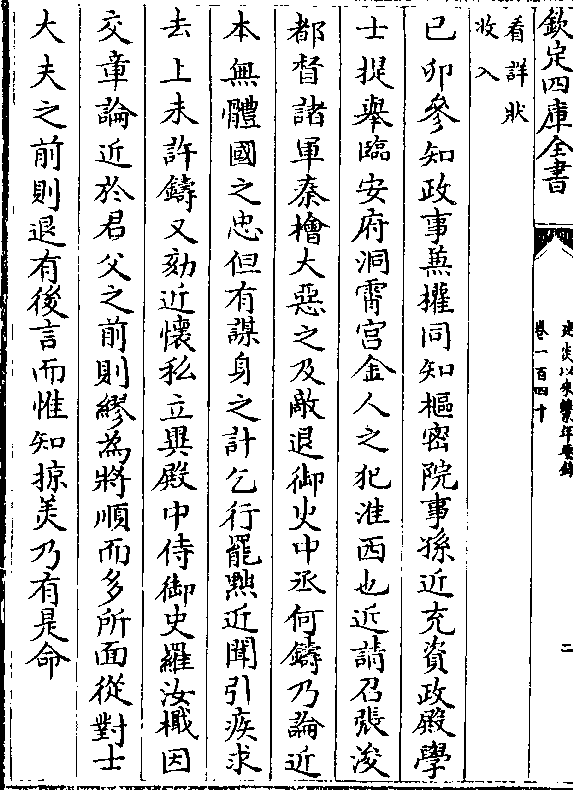 欽定四庫全書
建炎以來繫年要錄
卷一百四十
二
看詳狀
收入
己卯參知政事兼權同知樞密院事孫近充資政殿學
士提舉臨安府洞霄宫金人之犯淮西也近請召張浚
都督諸軍秦檜大惡之及敵退御史中丞何鑄乃論近
本無體國之忠但有謀身之計乞行罷黜近聞引疾求
去上未許鑄又劾近懷私立異殿中侍御史羅汝檝因
交章論近於君父之前則繆為將順而多所面從對士
大夫之前則退有後言而惟知掠美乃有是命